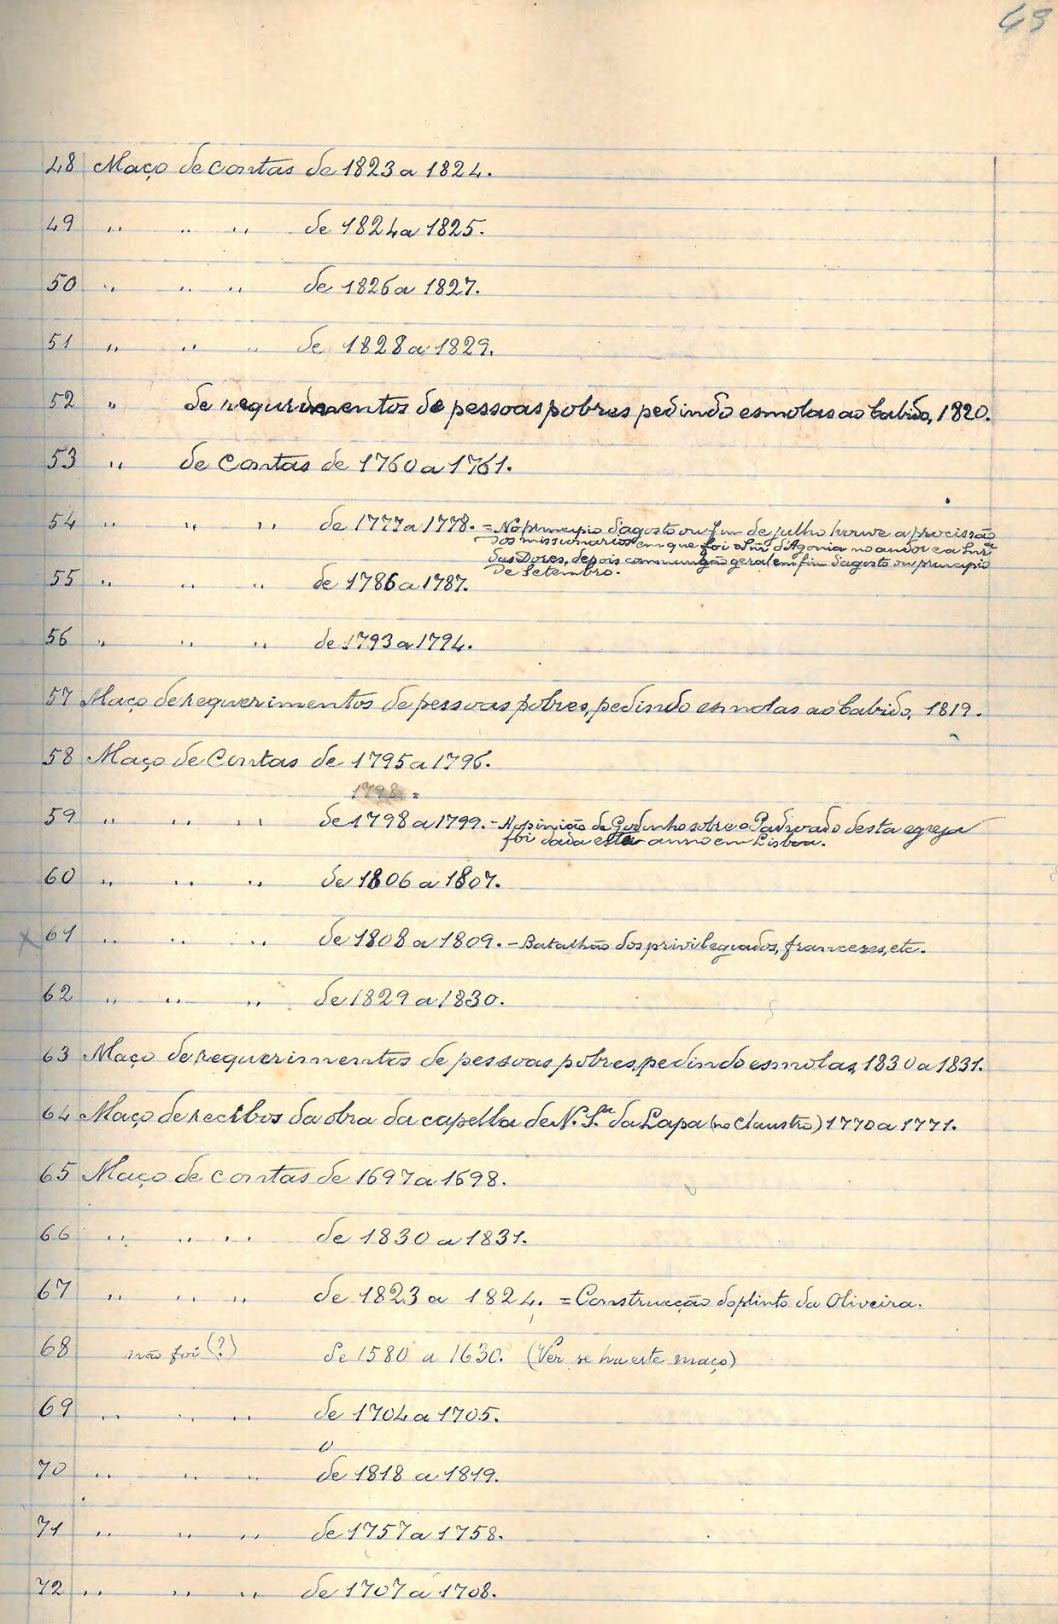 63
48 Maço de contas de 1823 a 1824.
49 " " " de 1824 a 1825.
50 " " " de 1826 a 1827.
51 " " " de 1828 a 1829.
52 " de requerimentos de pessoas pobres pedindo esmolas ao Cabido, 1820.
53 " de contas de 1760 a 1761.
54 " " " de 1777 a 1778. = No principio d'agosto ou fim de julho houve a procissão
dos missionarios em que foi o Snr d'Agonia no andor e a Snr.ª
das Dores, depois communhão geral em fim d'agosto ou principio
de Setembro.
55 " " " de 1786 a 1787.
56 " " " de 1793 a 1794.
57 Maço de requerimentos de pessoas pobres, pedindo esmolas ao Cabido, 1819.
58 Maço de Contas de 1795 a 1796.
1798 =
59 " " " de 1798 a 1799. - A opinião de Godinho sobre o Padroado desta egreja
foi dada este anno em Lisboa.
60 " " " de 1806 a 1807.
x 61 " " " de 1808 a 1809. - Batalhão dos privilegiados, francezes, etc.
62 " " " de 1829 a 1830.
63 Maço de requerimentos de pessoas pobres, pedindo esmolas, 1830 a 1831.
64 Maço de recibos da obra da capella de N. S.ra da Lapa (no Claustro) 1770 a 1771.
65 Maço de contas de 1697 a 1698.
66 " " " de 1830 a 1831.
67 " " " de 1823 a 1824. = Construcção do plinto da Oliveira.
68 não foi (?) de 1580 a 1630. (Ver se ha este maço)
69 " " " de 1704 a 1705.
70 " " " de 1818 a 1819.
71 " " " de 1757 a 1758.
72 " " " de 1707 a 1708.